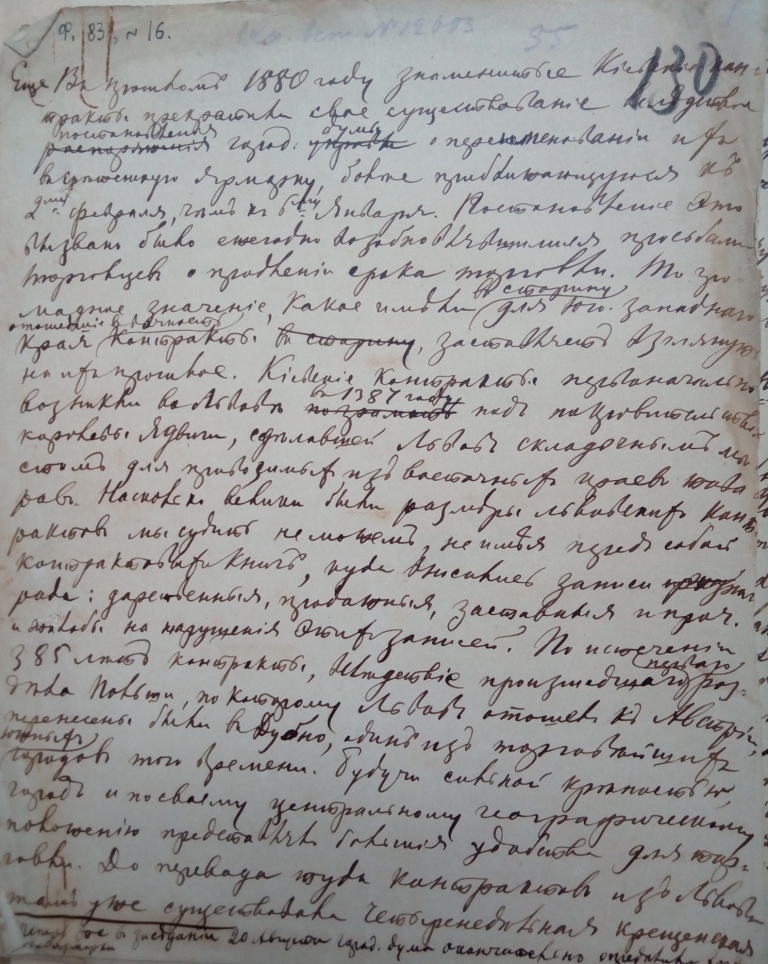 Ф. 83, № 16.
130
Еще въ прошломъ 1880 году знаменитые Кіевскіе кон-
тракты прекратили свое существованіе вслѣдствіе
постановленія думы
распоряженія город. управы о переименованіи ихъ
въ срочную ярмарку, болѣе приближающуюся къ
2 февраля, чѣмъ къ 6му Января. Постановленіе это
вызвано было ежегодно возобновлявшимися просьбами
торговцевъ о продленіи срока торговли. То гро-
мадное значеніе, какое имѣли въ старину для юго-западнаго
отошедшіе въ вѣчность
края контракты въ старину, заставляетъ взглянуть
на ихъ прошлое. Кіевскіе контракты первоначально
возникли во Львовѣ въ 1387 году подъ покровительствомъ
королевы Ядвиги, сдѣлавшей Львовъ складочнымъ мѣ-
стомъ для привозимыхъ изъ восточныхъ краевъ това-
ровъ. Насколько велики были размѣры львовскихъ конт-
рактовъ мы судить не можемъ, не имѣя предъ собой
контрактовыхъ книгъ, куда вносились записи разнаго
рода: дарственныя, продажныя, заставныя и проч.
и жалобы на нарушенія этихъ записей. По истеченіи
385 лѣтъ контракты, вслѣдствіе происшедшаго перваго раз-
дѣла Польши, по которому Львовъ отошелъ къ Австріи,
перенесены были въ Дубно, одинъ изъ торговѣйшихъ
южныхъ
городовъ того времени. Будучи сильной крѣпостью,
городъ и по своему центральному географическому
положенію представлялъ большія удобства для тор-
говли. До перевода туда контрактовъ изъ Львова
тамъ уже существовала четыренедѣльная крещенская
въ засѣданіи 20 Августа город. дума окончательно опредѣлила